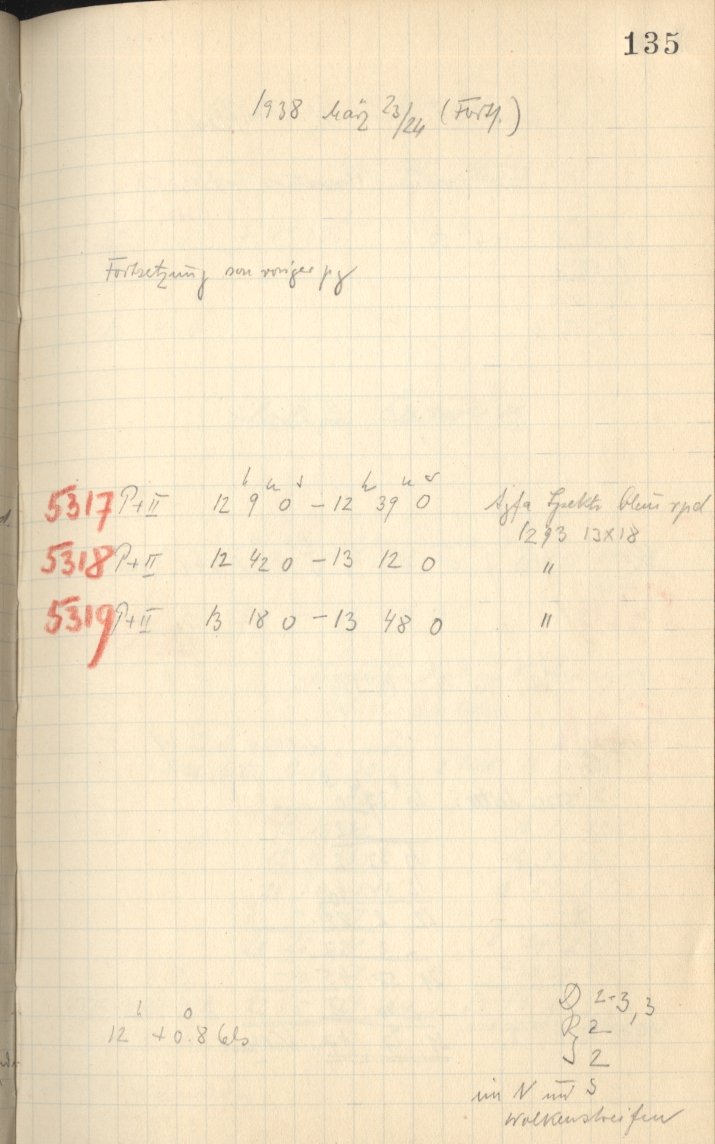 135
1938 März 23/24 (Forts.)
Fortsetzung von voriger pg
h m s h m s
5317 P+II 12 9 0 – 12 39 0 Agfa Spektr. blau rpd
1293 13×18
5318 P+II 12 42 0 – 13 12 0 "
5319 P+II 13 18 0 – 13 48 0 "
12h +0.8°
D 2-3, 3
R 2
J 2
im N und S
Wolkenstreifen